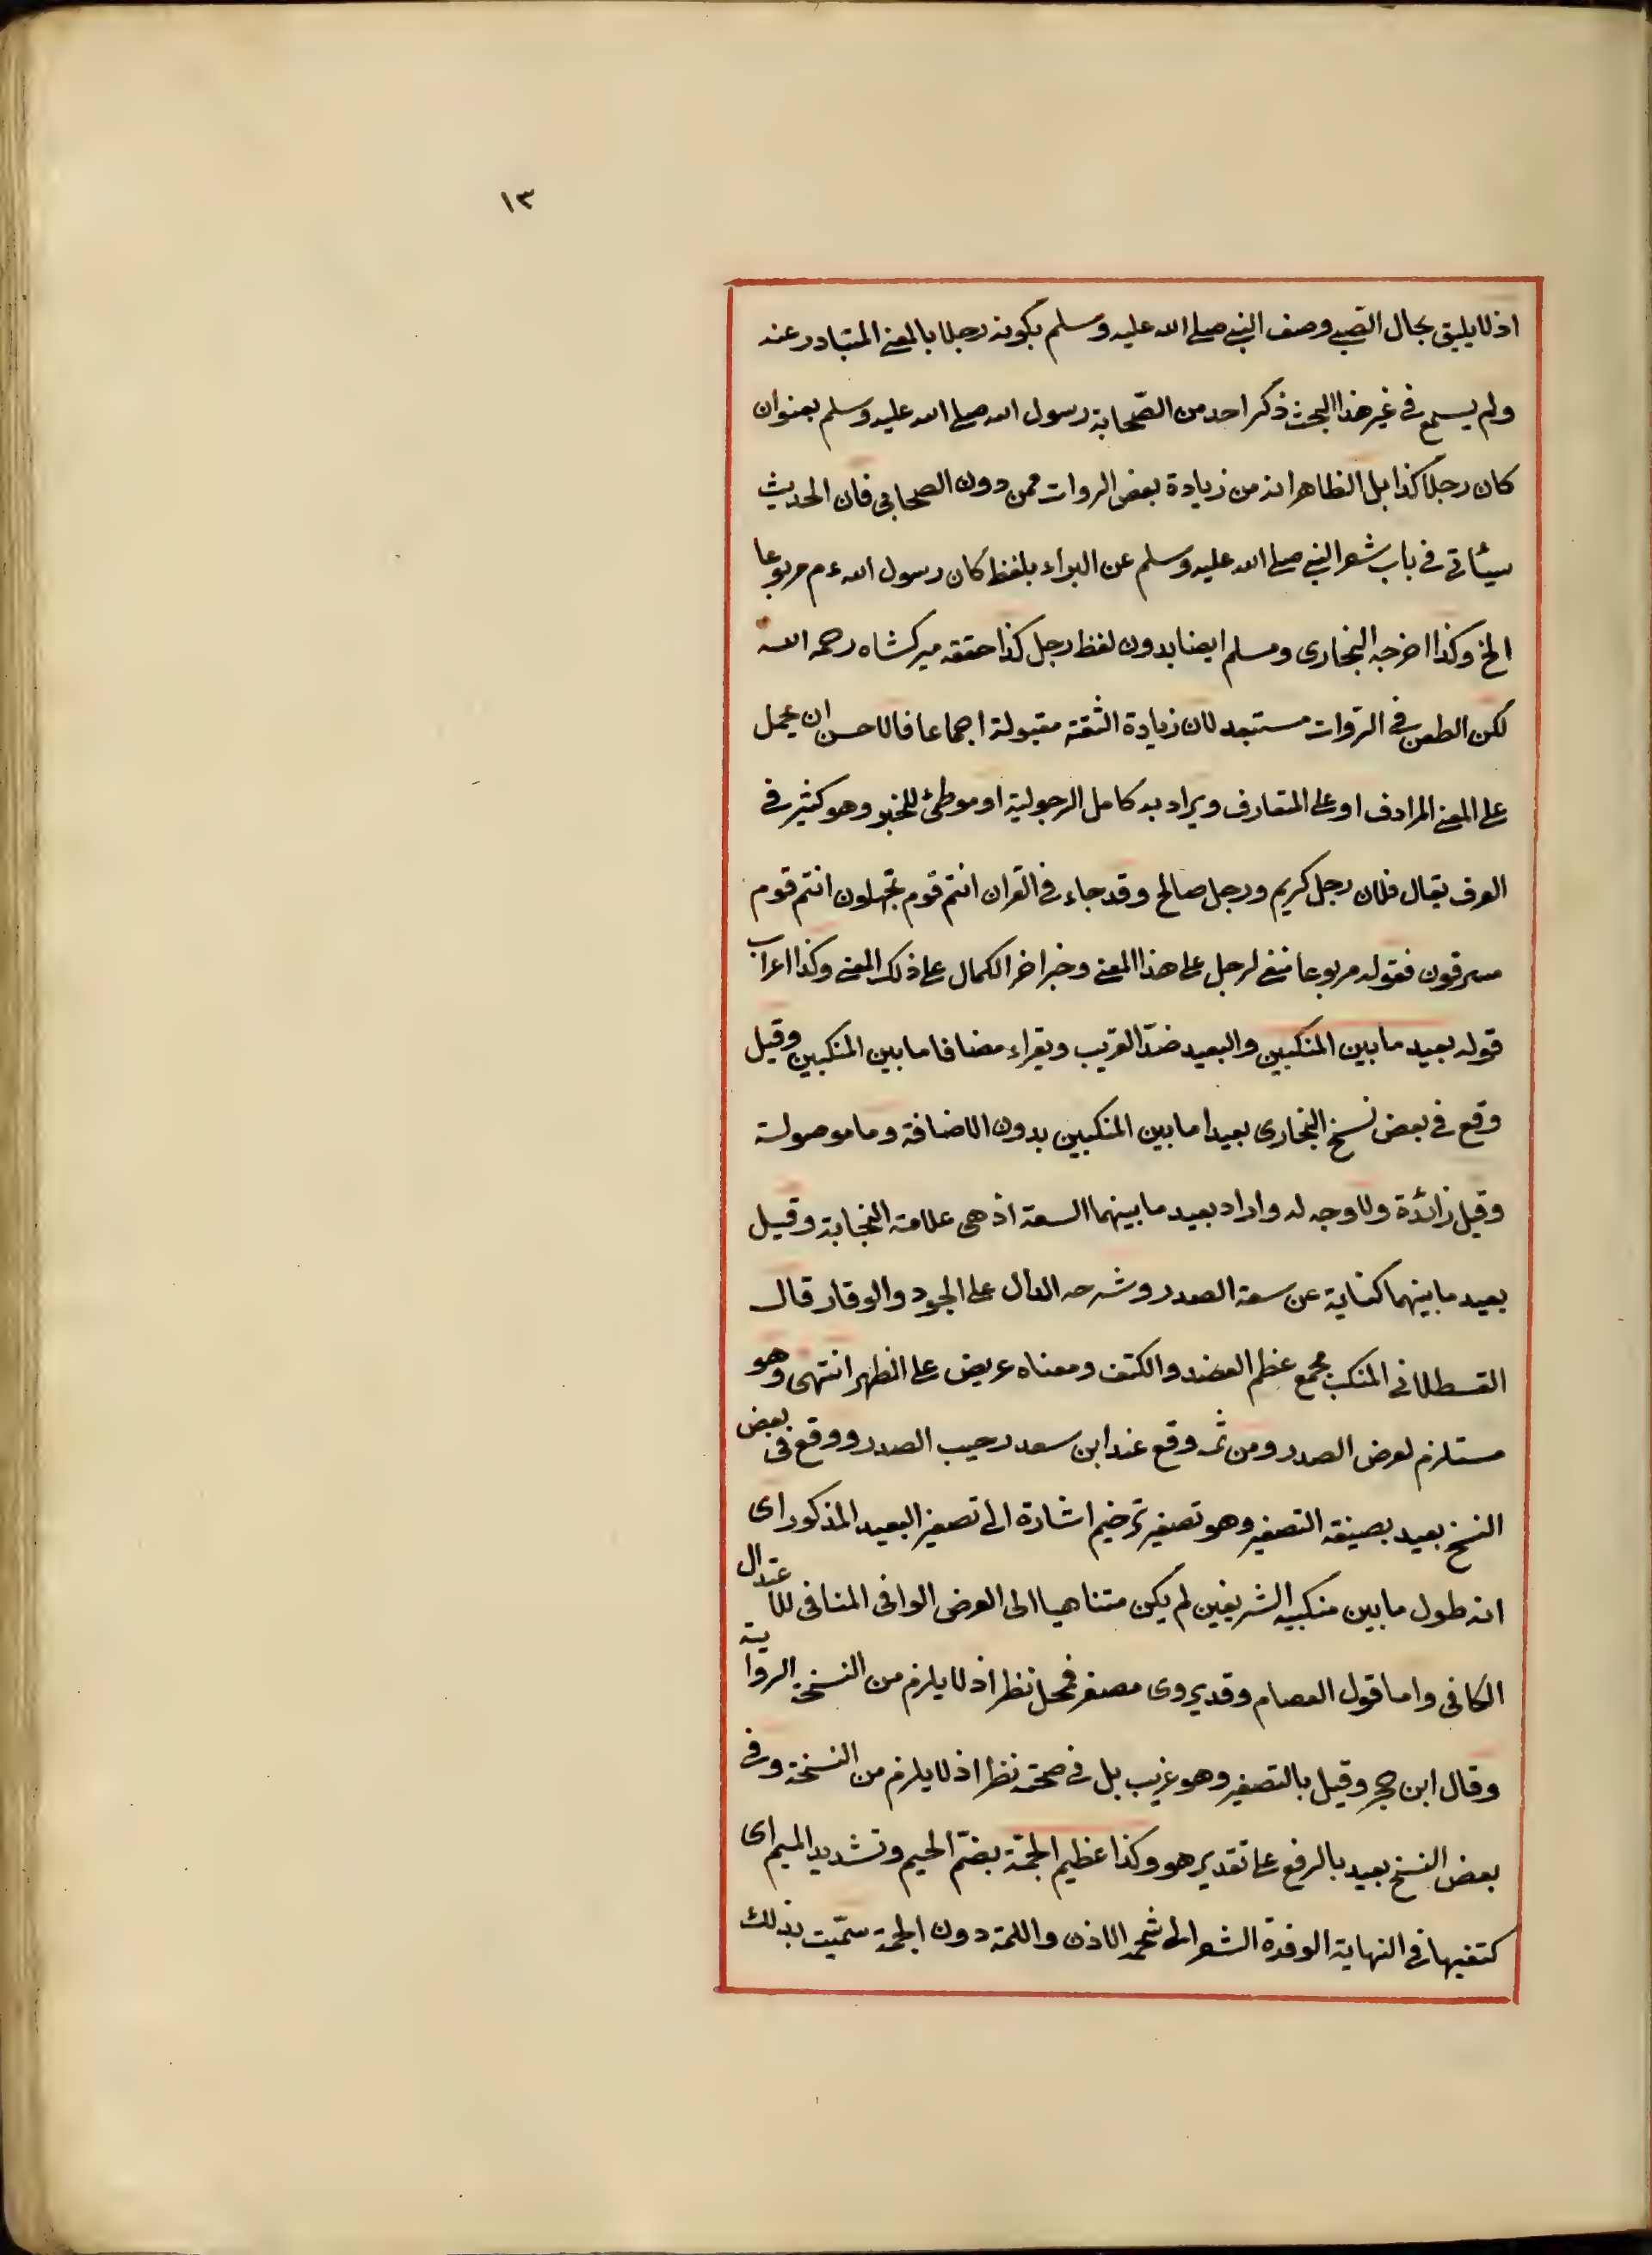 ١٣
اذ لا يليق بحال الصبي وصف النبي صلى الله عليه وسلم بكونه رجلا بالمعنى المتبادر عند
ولم يسمع في غير هذا البحث ذكر احد من الصّحابة رسول الله صلى الله عليه وسلم بعنوان
كان رجلا كذا بل الظاهر انه من زيادة بعض الروات ممن دون الصحابي فان الحديث
سيئاتي في باب شعر النبي صلى الله عليه وسلم عن البراء بلفظ كان رسول الله ءم مربوعا
الخ وكذا اخرجه البخارى ومسلم ايضا بدون لفظ رجل كذا حققه ميركشاه رحمه الله
لكن الطعن في الرّوات مستبعد لان زيادة الثقة مقبولة اجماعا فالاحسن ان يحمل
على المعنى المرادف او على المتعارف ويراد به كامل الرجولية او موطئ للخبر وهو كثير في
العرف يقال فلان رجل كريم ورجل صالح وقد جاء في القران انتم قوم تجهلون انتم قوم
مسرفون فقوله مربوعا نفى لرجل على هذا المعنى وخبر اخر لكمال على ذلك المعنى وكذا اعراب
قوله بعيد ما بين المنكبين والبعيد ضدّ القريب ويقراء مضافا ما بين المنكبين وقيل
وقع في بعض نسخ البخارى بعيدا ما بين المنكبين بدون الاضافة وما موصولة
وقيل زائدة ولا وجه له واراد بعيد ما بينهما السعة اذ هى علامة النجابة وقيل
بعيد ما بينهما كناية عن سعة الصدر وشرحه الدال على الجود والوقار قال
القسطلاني المنكب مجمع عظم العضد والكتف ومعناه عريض على الظهر انتهى وهو
مستلزم لعرض الصدر ومن ثمه وقع عند ابن سعد رحيب الصدر ووقع في بعض
النسخ بعيد بصيغة التصغير وهو تصغير ترخيم اشارة الى تصغير البعيد المذكور اى
انه طول ما بين منكبيه الشريفين لم يكن متناهيا الى العرض الوافى المنافى للاعتدال
الكافى واما قول العصام وقد يروى مصغر فمحل نظر اذ لا يلزم من النسخة الرواية
وقال ابن حجر وقيل بالتصغير وهو غريب بل في صحته نظر اذ لا يلزم من النسخة وفى
بعض النسخ بعيد بالرفع على تقدير هو وكذا عظيم الجمّة بضمّ الجيم وتشديد الميم اى
كتفيها في النهاية الوفرة الشعر الى شحمه الاذن واللمة دون الجمة سمّيت بذلك